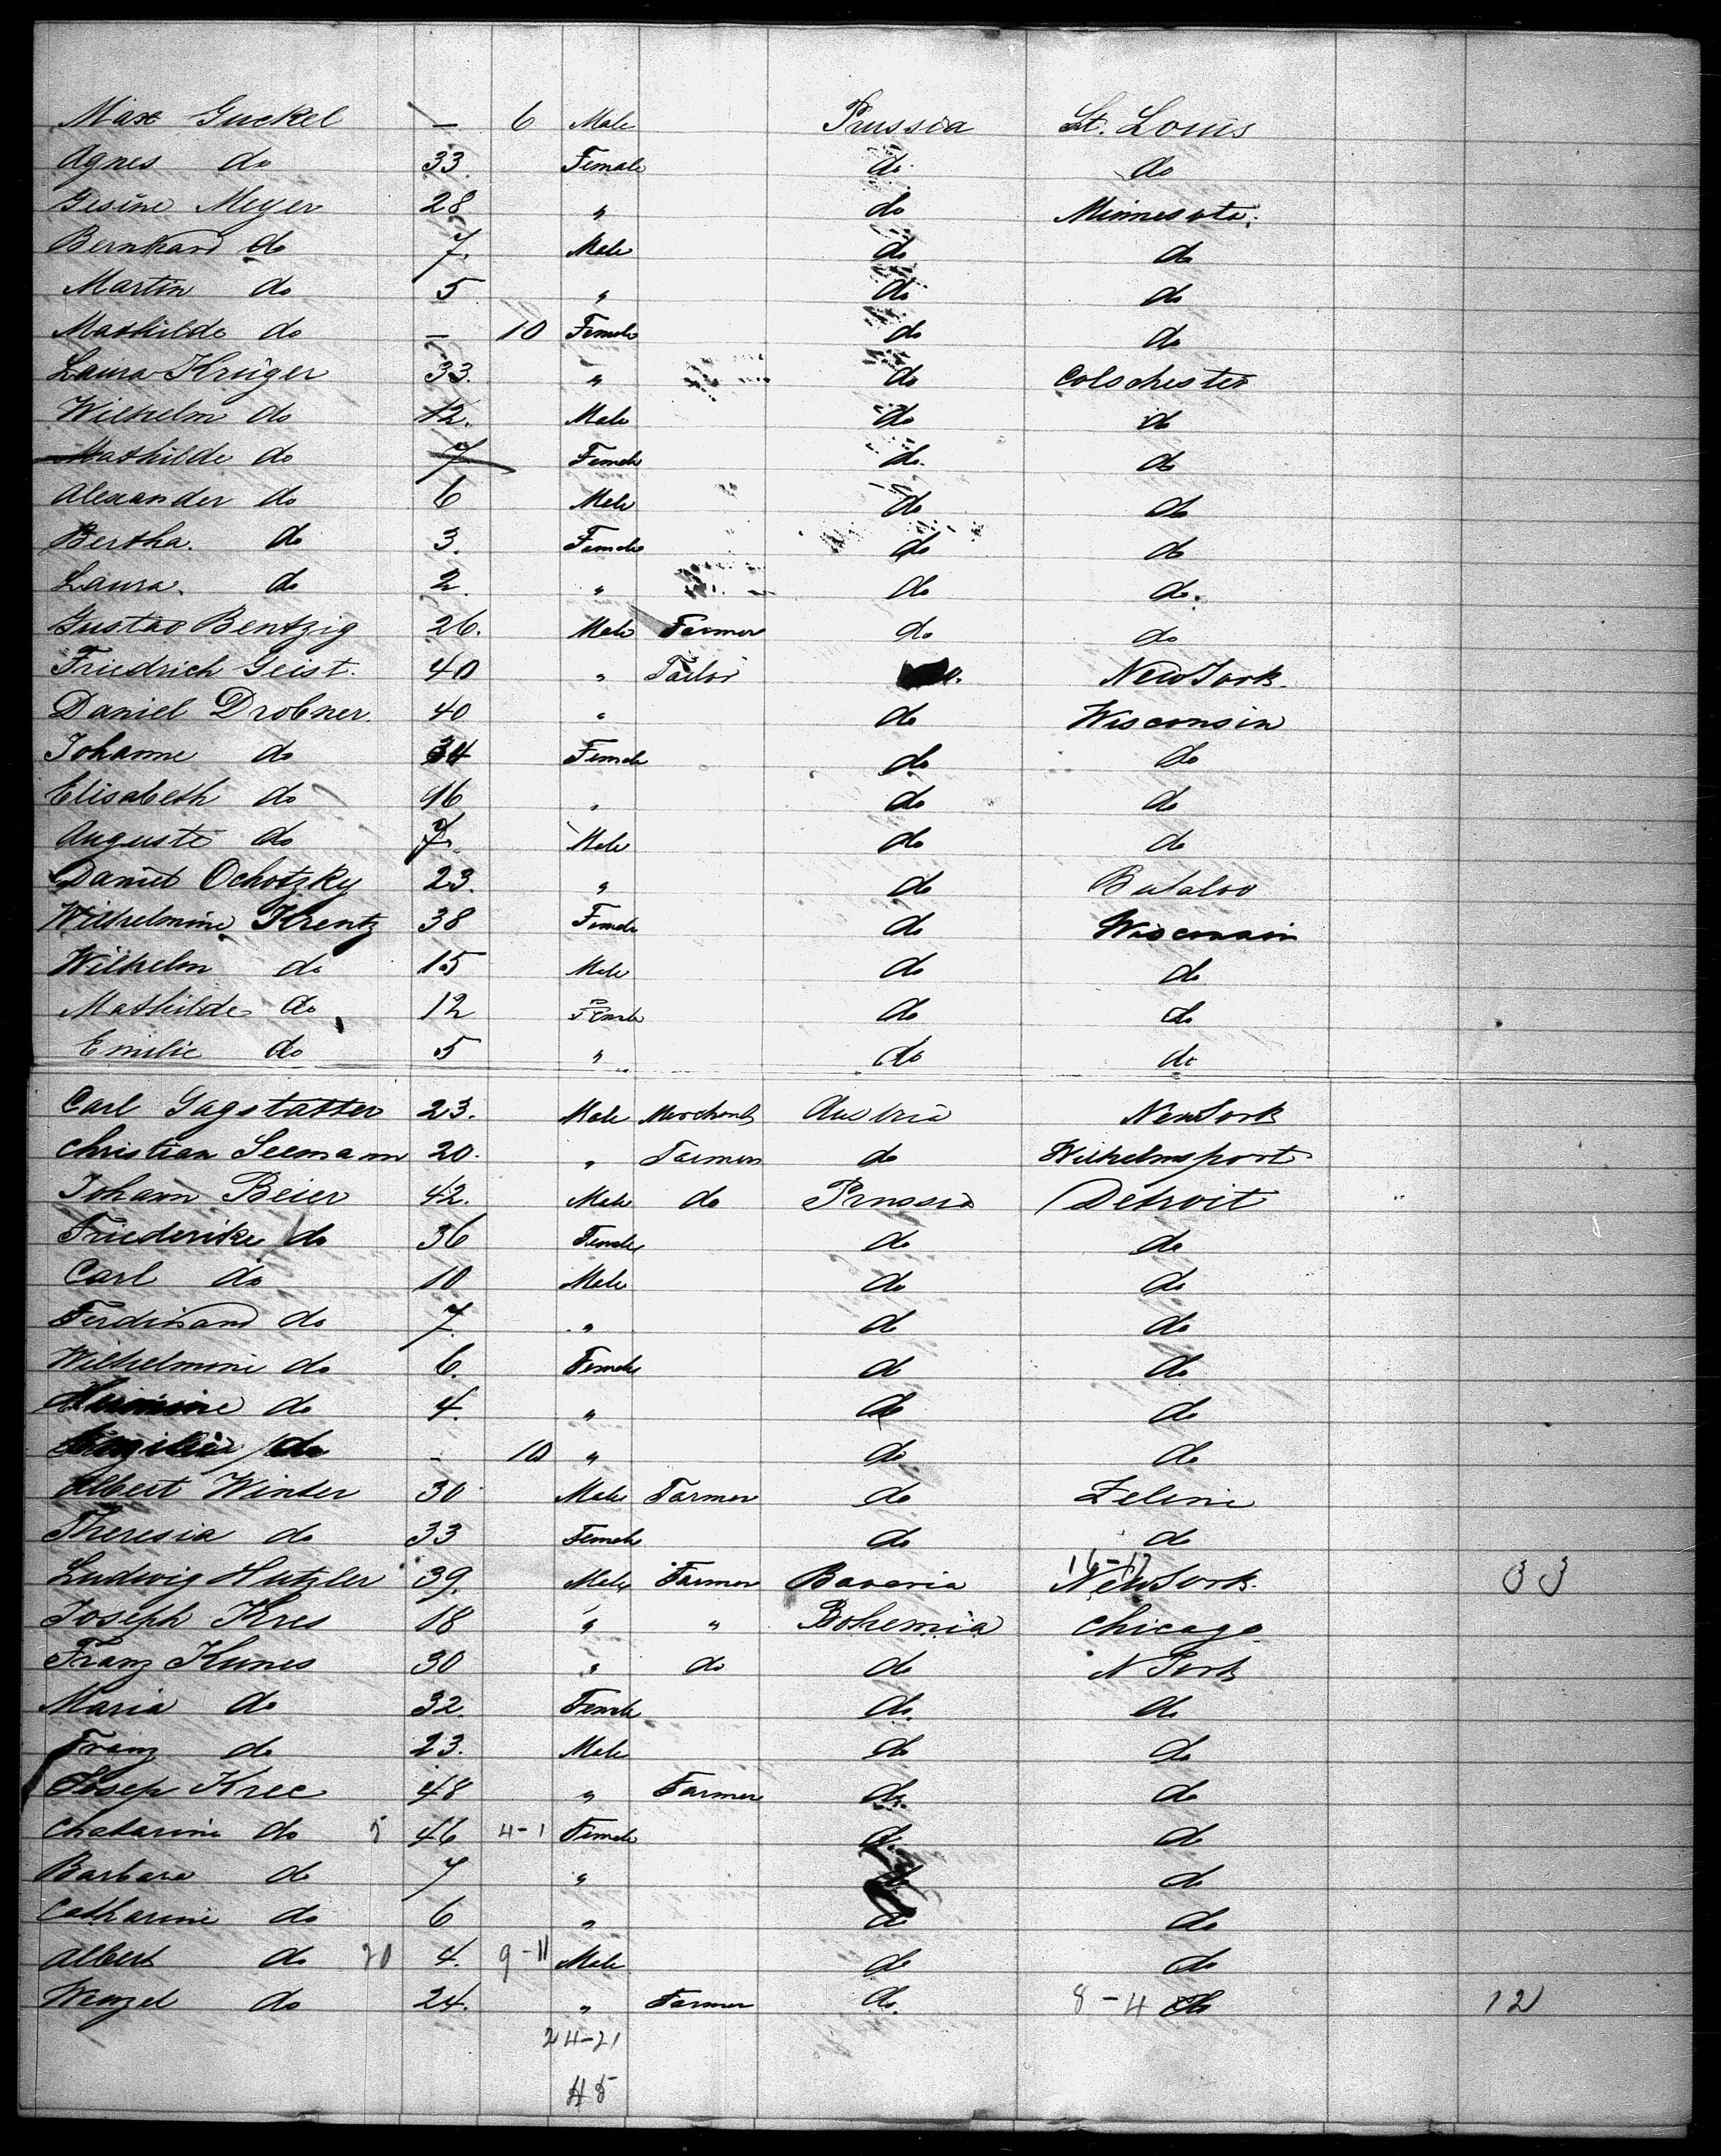 Max Guckel — 6 Male Prussia St. Louis
Agnes do 33. Female do do
Gesine Meyer 28 " do Minnesota.
Bernhard do 7. Male do do
Martin do 5 " do do
Mathilde do — 10 Female do do
Laura Krüger 33. " do Colschester
Wilhelm do 12. Male do do
Mathilde do 7 Female do. do
Alexander do 6 Male do do
Bertha. do 3. Female do do
Laura. do 2. " do do.
Gustav Bentzig 26. Male Farmer do do
Friedrich Geist. 40 " Tailor New York.
Daniel Drobner. 40 " do Wisconsin
Johanne do 34 Female do do
Elisabeth do 16 " do do
Auguste do 7. Male do do
Daniel Ochotzky 23. " do Bufaloo
Wilhelmine Krentz 38 Female do Wisconsin
Wilhelm do 15 Male do do
Mathilde do 12 Female do do
Emilie do 5 " do do
Carl Gagstatter 23. Male Merchant Austria New York
Christian Seemann 20. " Farmer do Wilhelmsport
Johann Beier 42. Male do Prussia Detroit
Friederike do 36 Female do do
Carl do 10 Male do do
Ferdinand do 7. " do do
Wilhelmine do 6. Female do do
do 4. " do do
do - 10 " do do
Albert Winter 30 Male Farmer do Zeline
Theresia do 33 Female do do
16-17
Ludwig Hutzler 39. Male Farmer Bavaria New York. 33
Joseph Kres 18 " " Bohemia Chicago
Franz Kunes 30 " do do N York
Maria do 32. Female do. do
Franz do 23. Male do do
Josep Krec 48 " Farmer do. do
Chatarine do 5 46 4-1 Female do do
Barbara do 7 " do do
Catharine do 6 " do do
Albert do 20 4. 9-11 Male do do
Wenzel do 24. " Farmer do. 8-4 do 12
24-21
45